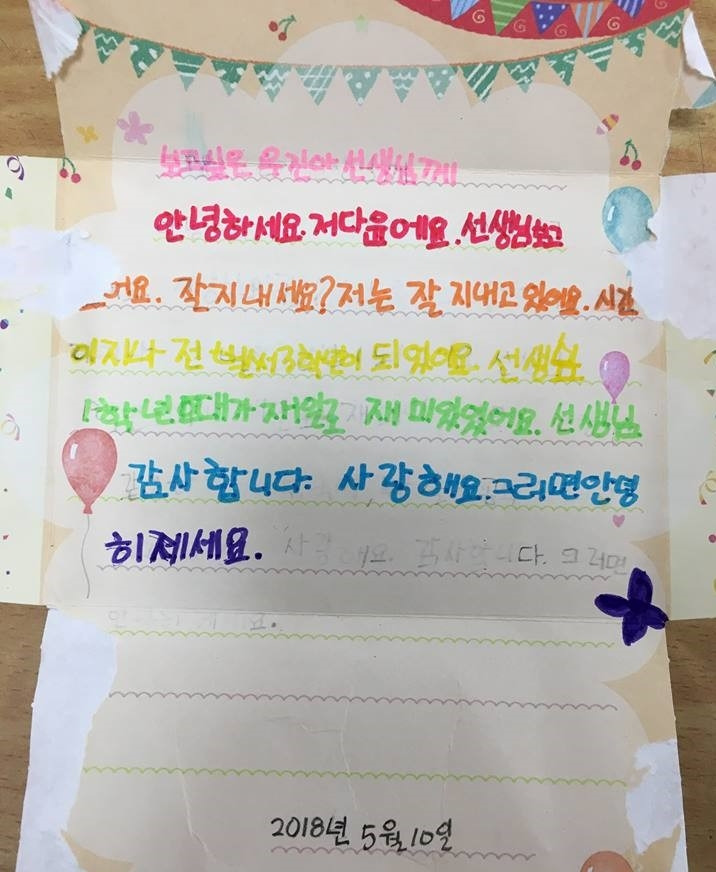 보고싶은 우진아 선생님께
안녕하세요. 저다윤에요. 선생님보고
어요. 잘지내세요? 저는 잘 지내고있어요. 시간
이지나 전 벌써3학년이 되었어요. 선생님
1학년때가 재일로 재미있었어요. 선생님
감사합니다. 사랑해요. 그러면안녕
히제세요. 사랑해요. 감사합니다. 그러면
2018년 5월10일